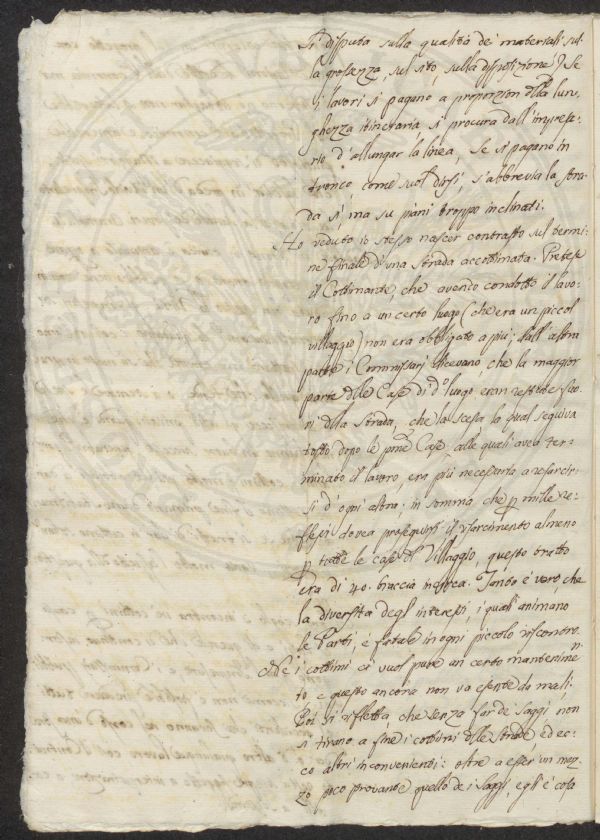 Si disputa sulla qualità de' materiali sul-
la grossezza, sul sito, sulla disposizione. Se
i lavori si pagano a proporzion della lun-
ghezza itineraria si procura dall'imprese-
rio d'allungar la linea, se si pagano in
tronco come suol dirsi, s'abbrevia la stra-
da sì, ma su piani troppo inclinati.
Ho veduto io stesso nascer contrasto sul termi-
ne finale d'una strada accottimata. Pretese
il Cottimante, che avendo condotto il lavo-
ro fino a un certo luogo (che era un piccol
villaggio) non era obbligato a più; dall'altra
parte i Commissari dicevano, che la maggior
parte delle Case di d.o luogo eran restate fuo-
ri della strada, che la scesa la qual seguiva
tosto dopo le pme Case alle quali avea ter-
minato il lavoro, era più necessaria a risarcir-
si d'ogni altra; in somma, che p mille ri-
flessi dovea proseguirsi il risarcimento almeno
p tutte le case del Villaggio, questo tratto
era di 40. braccia incirca. Tanto è vero, che
la diversità degl'interessi, i quali animano
le Parti, è fatale in ogni piccolo riscontro.
Ne' i cottimi ci vuol pure un certo mantenimen-
to e questo ancora non va esente da mali.
Poi si rifletta, che senza far de' saggi non
si tirano a fine i cottimi delle strade, ed ec-
co altri inconvenienti: oltre a esser un mez-
zo poco provante quello de i saggi, egli è cosa